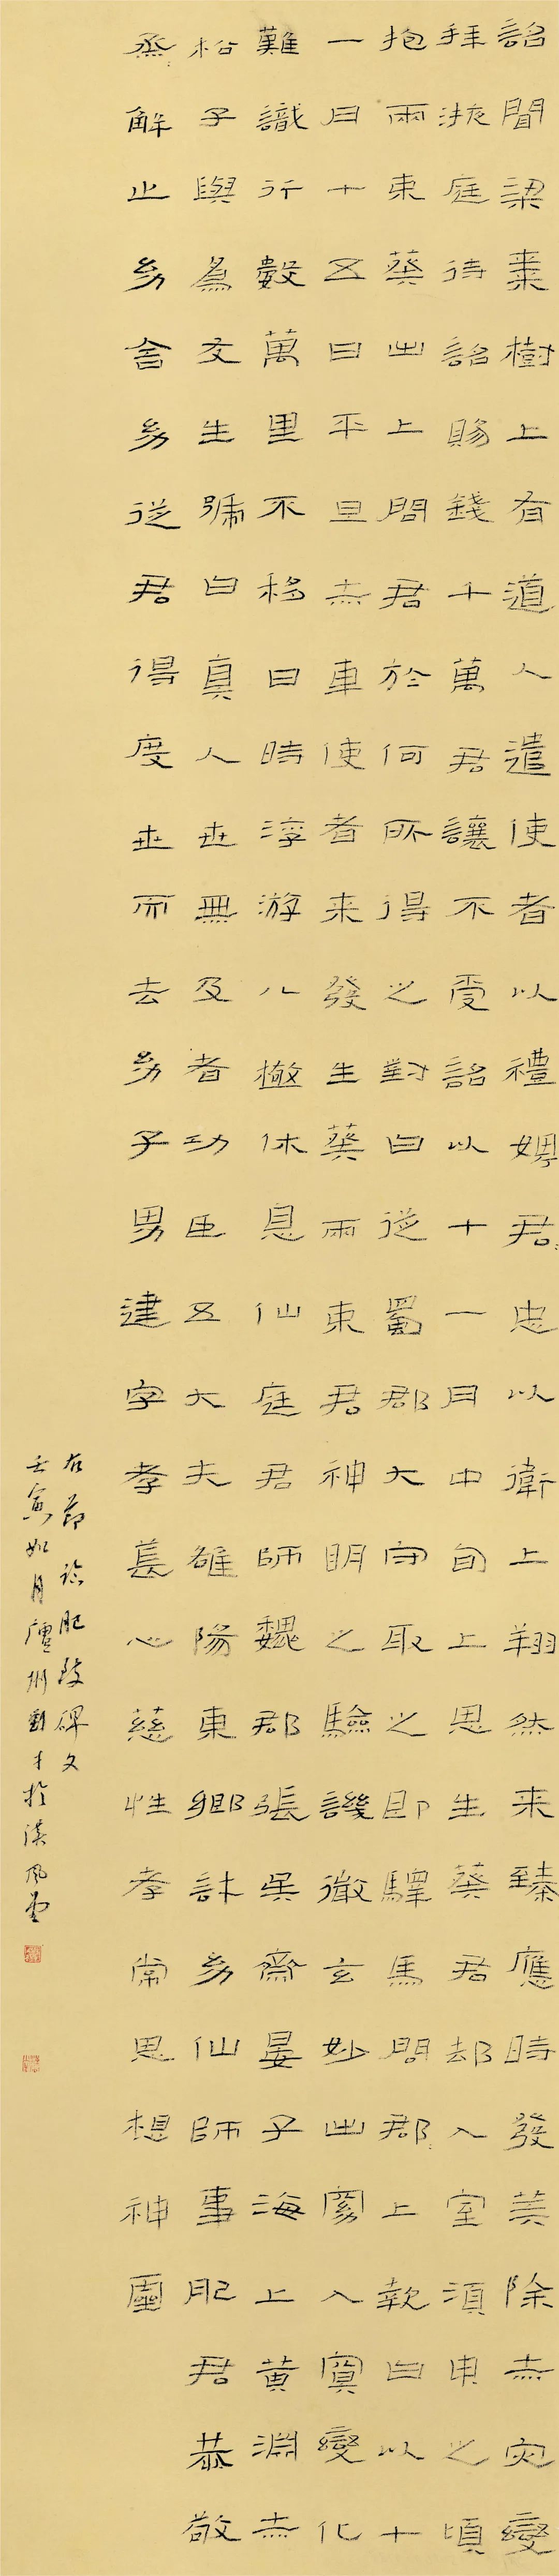 詔聞梁棗樹上有道人遣使者以禮娉君忠以衛上翔然来臻應時發美除赤灾變
拜掖庭待詔賜錢千萬君讓不受詔以十一月中旬上思生葵君却入室須臾之頃
抱兩束葵出上問君於何所得之對曰從蜀郡大守取之即驛馬問郡上報曰以十
一月十五日平旦赤車使者来發生葵兩束君神明之驗譏徹玄妙出窈入冥變化
難識行數萬里不移日時浮游八極休息仙庭君師魏郡張吴齊晏子海上黄淵赤
松子與爲友生號曰真人世無及者功臣五大夫雒陽東鄉許幼仙師事肥君恭敬
烝解止幼舍幼從君得度世而去幼子男建字孝萇心慈性孝常思想神靈
右節臨肥致碑文
壬寅如月廬州劉才於漢風堂